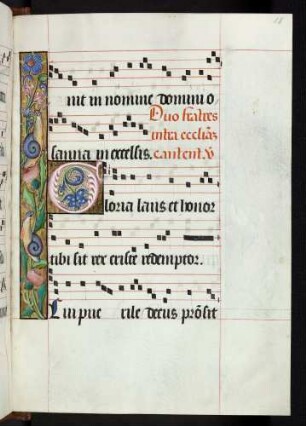 nit in nomine domini o
Duo fratres
intra eccliaz
sanna in excelsis. cantent. V
Gloria laus et honor
tibi sit rex criste redemptor.
Cui pue rile decus prosit